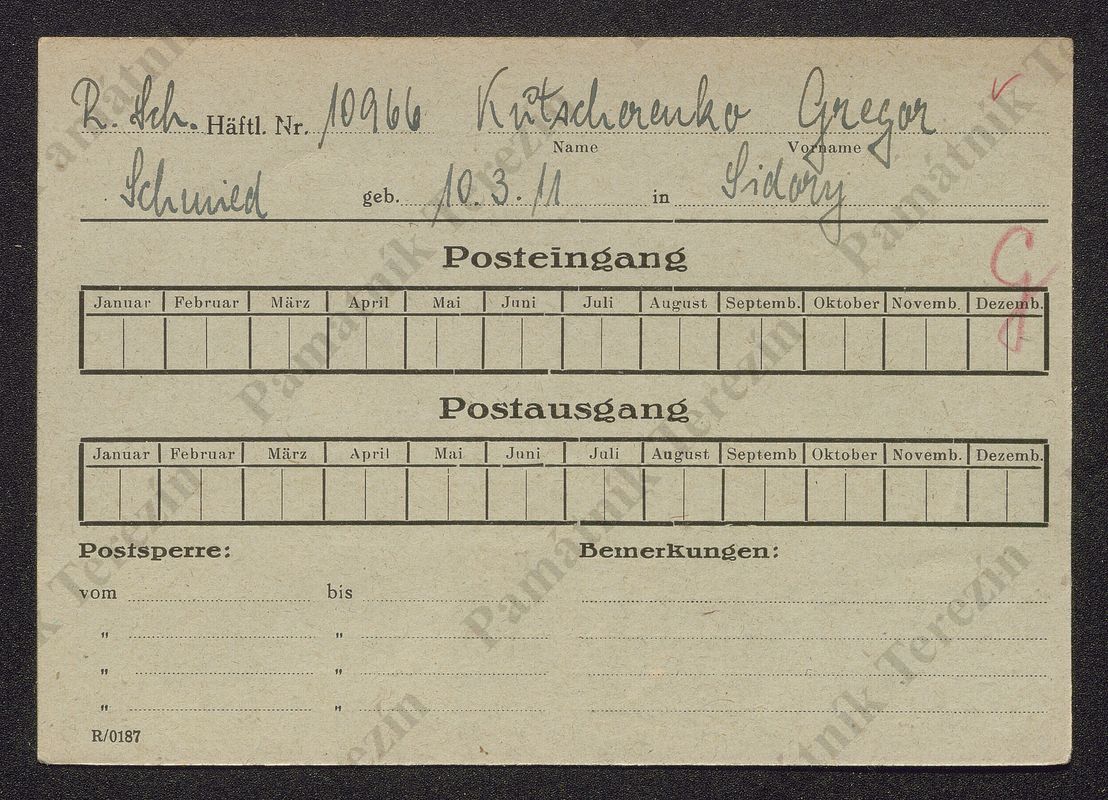 R. Sch. Häftl. Nr. 10966 Kutscherenko Gregor
Name Vorname
Schmied geb. 10.3.11 in Sidory
Posteingang
Januar Februar März April Mai Juni Juli August Septemb. Oktober Novemb. Dezemb.
Postausgang
Januar Februar März April Mai Juni Juli August Septemb Oktober Novemb. Dezemb.
Postsperre: Bemerkungen:
vom bis
" "
" "
" "
R/0187
Památník Terezín